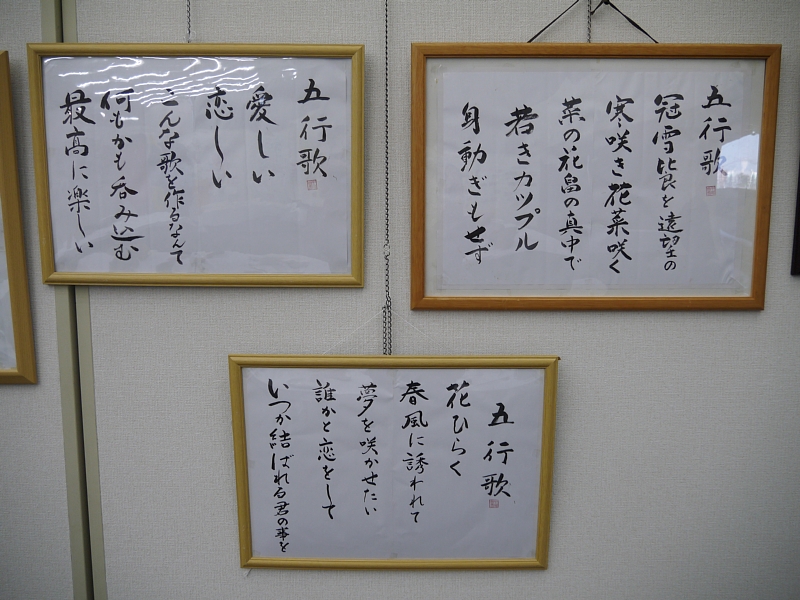 五行歌
愛しい
恋しい
こんな歌を作るなんて
何もかも呑み込む
最高に楽しい
五行歌
冠雪比良を遠望の
寒咲き花菜咲く
菜の花畠の真中で
若きカップル
身動ぎもせず
五行歌
花ひらく
春風に誘われて
夢を咲かせたい
誰かと恋をして
いつか結ばれる君の事を